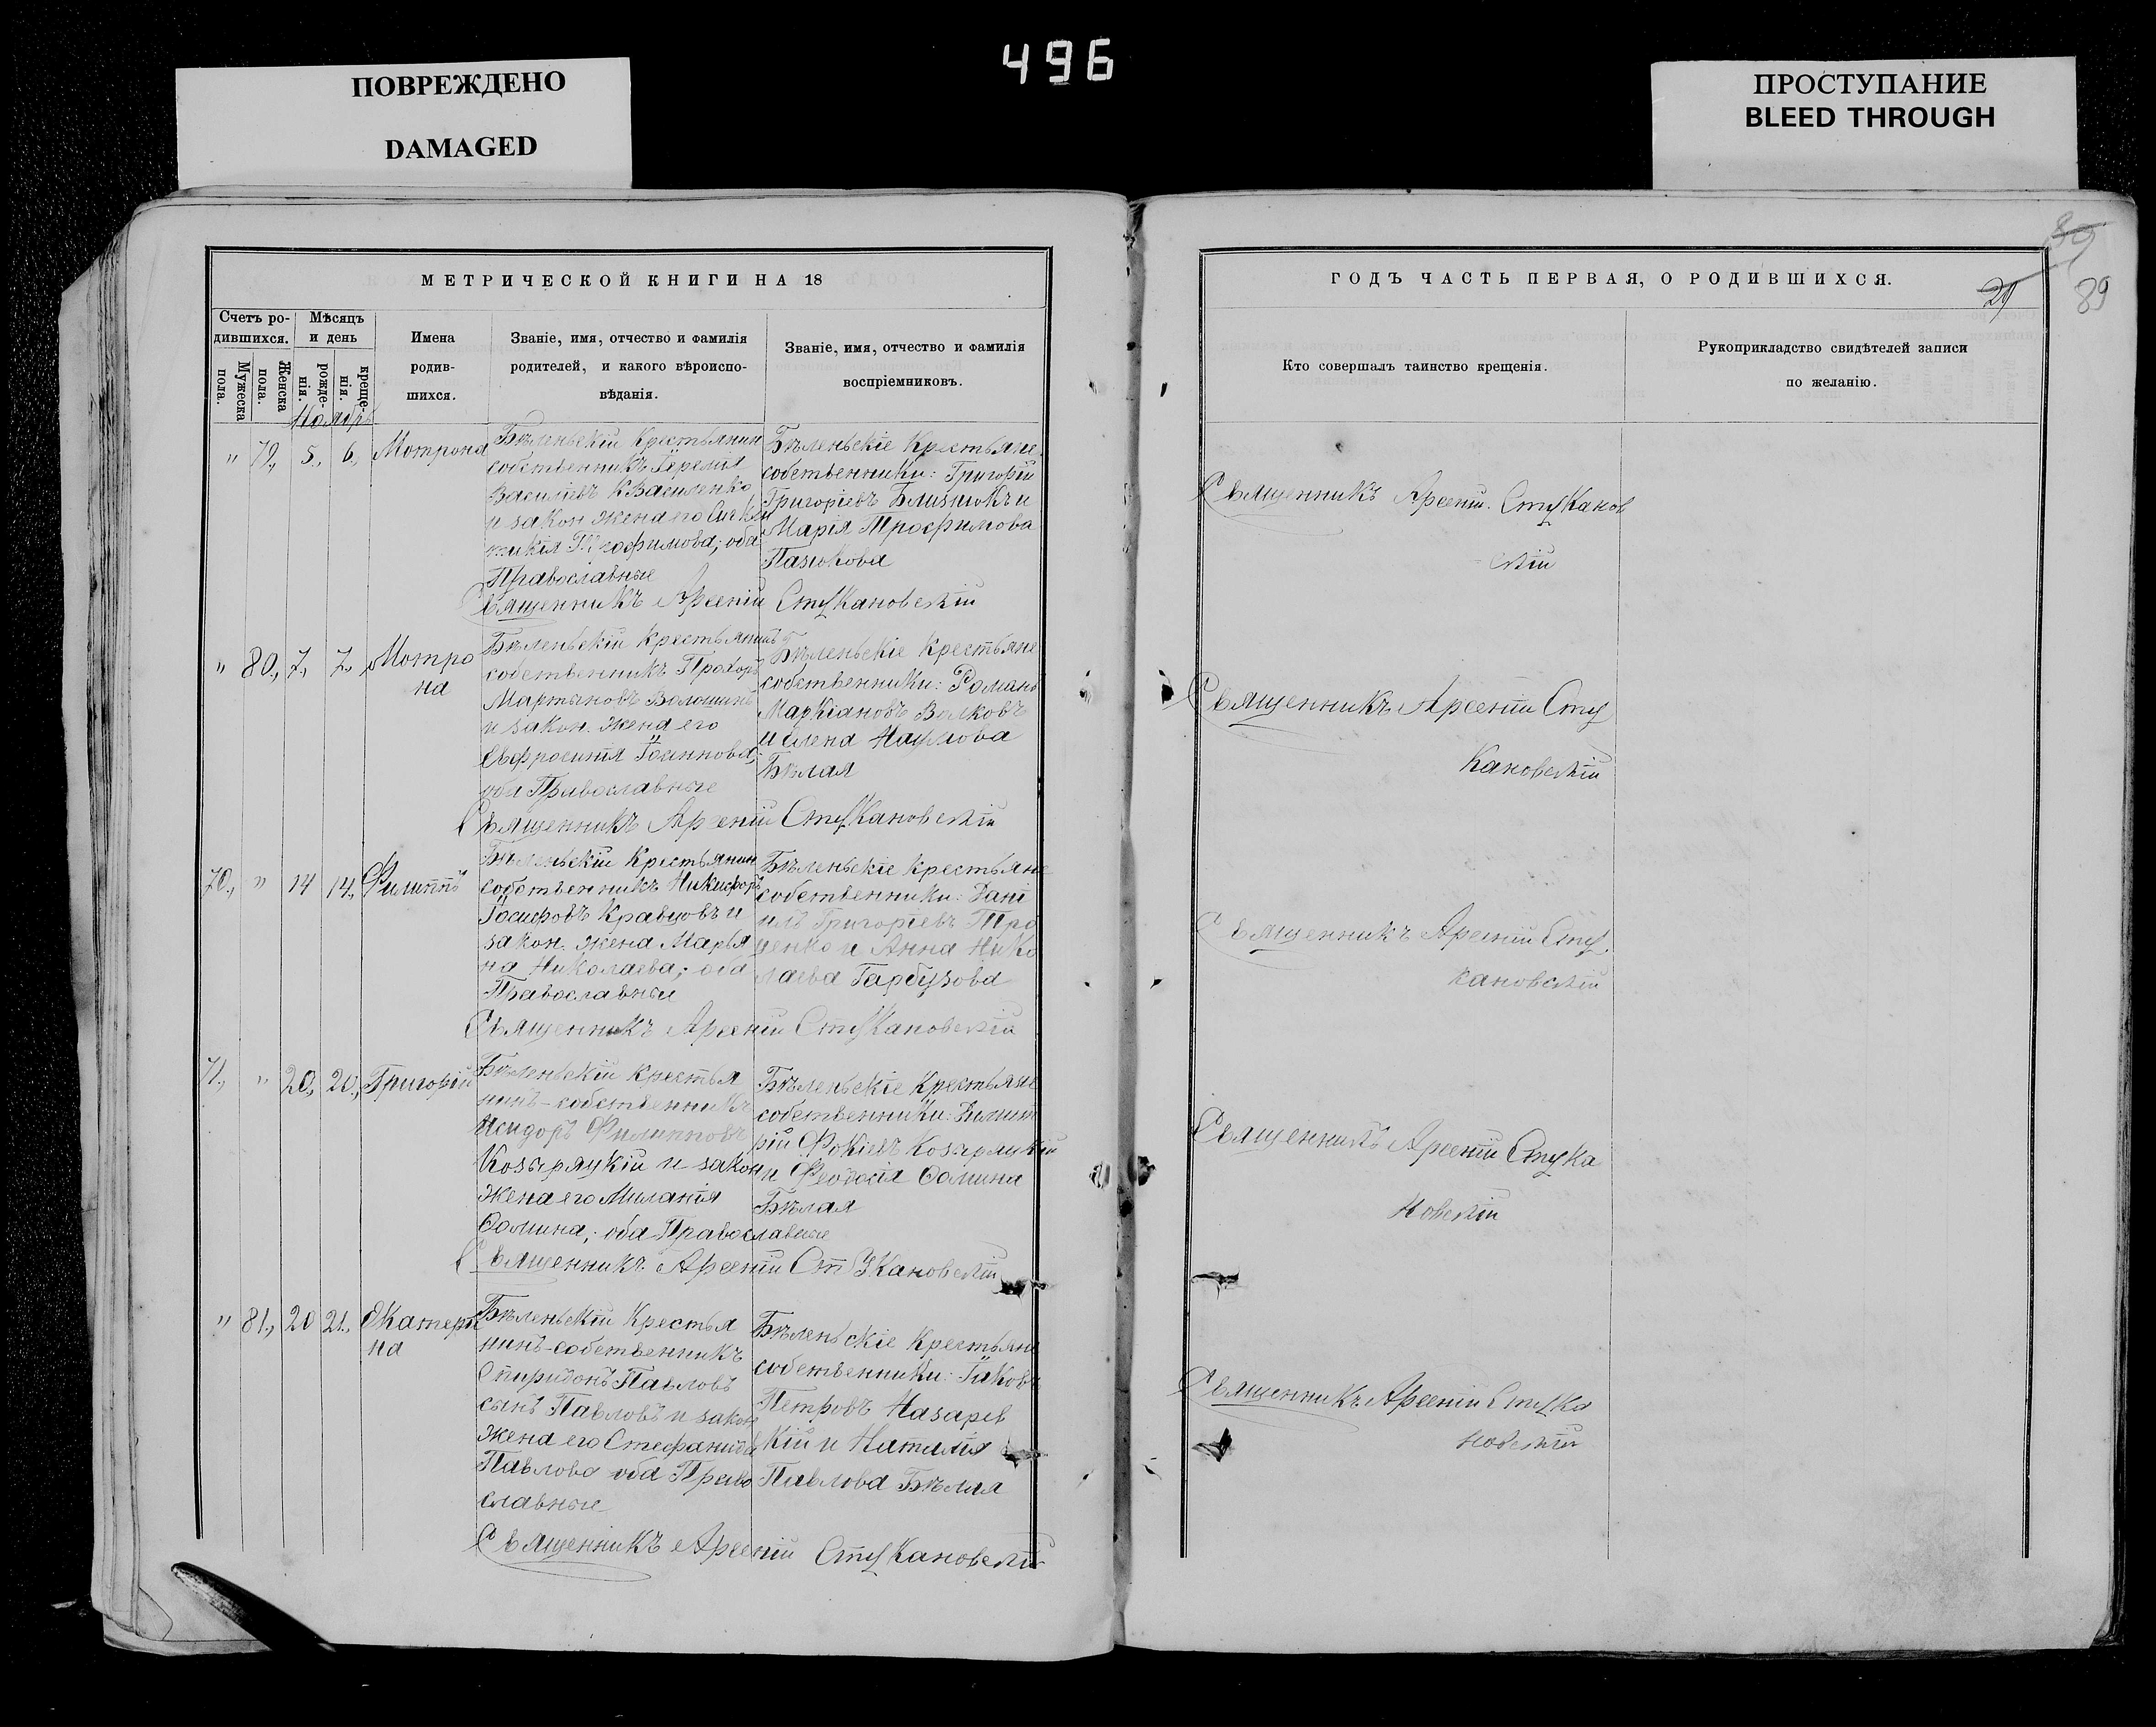 496
ПОВРЕЖДЕНО
DAMAGED
ПРОСТУПАНИЕ
BLEED THROUGH
МЕТРИЧЕСКОЙ КНИГИ НА 18
Счетъ ро-
дившихся.
Мужеска
пола.
Женска
пола.
Мѣсяцъ
и день
рожде-
нія.
креще-
нія.
Имена
родив-
шихся.
Званіе, имя, отчество и фамилія
родителей, и какого вѣроиспо-
вѣданія.
Званіе, имя, отчество и фамилія
воспріемниковъ.
Ноябрь
" 79., 5., 6., Мотрона
Бѣленьскій Крестьянин
собственникъ Іеремія
Василіевъ Василенко
и закон жена его
Трофимова; оба
Православные
Бѣленьскіе Крестьяне
собственники: Григорій
Григоріевъ Близнюкъ и
Марія Трофимова
Пазюкова
Священникъ Арсеній Стукановскій
" 80., 7., 7., Мотро
на
Бѣленьскій Крестьянинъ
собственникъ Прохоръ
Мартыновъ Волошинъ
и закон. жена его
Евфросинія Іоаннова;
оба Православные
Бѣленьскіе Крестьяне
собственники: Романъ
Маркіановъ Волковъ
и Елена Наумова
Бѣлая
Священникъ Арсеній Стукановскій
70., " 14 14., Филиппъ
Бѣленьскій Крестьянин
собственникъ Никифоръ
Іосифовъ Кравцовъ и
закон. жена Марья
на Николаева; оба
Православные
Бѣленьскіе Крестьяне
собственники: Дані
илъ Григоріевъ Тро
ценко и Анна Нико
лаева Гарбузова
Священникъ Арсеній Стукановскій
71., " 20., 20., Григорій
Бѣленьскій крестья
нинъ-собственникъ
Исидоръ Филипповъ
Козыряцкій и закон
жена его Миланія
Ѳомина; оба Православные
Бѣленьскіе Крестьяне
собственники: Димит
рій Фокіевъ Козыряцкій
и Феодосія Ѳомина
Бѣлая
Священникъ Арсеній Стукановскій
" 81., 20 21., Екатери
на
Бѣленьскій Крестья
нинъ-собственникъ
Спиридонъ Павловъ
сынъ Павловъ и закон
жена его Стефанида
Павлова оба Право
славные
Бѣленьскіе Крестьяне
собственники: Іаковъ
Петровъ Назарев
кій и Наталія
Павлова Бѣлая
Священникъ Арсеній Стукановскій
ГОДЪ ЧАСТЬ ПЕРВАЯ, О РОДИВШИХСЯ.
89
Кто совершалъ таинство крещенія.
Рукоприкладство свидѣтелей записи
по желанію.
Священникъ Арсеній Стуканов
скій
Священникъ Арсеній Сту
кановскій
Священникъ Арсеній Сту
кановскій
Священникъ Арсеній Стука
новскій
Священникъ Арсеній Стука
новскій